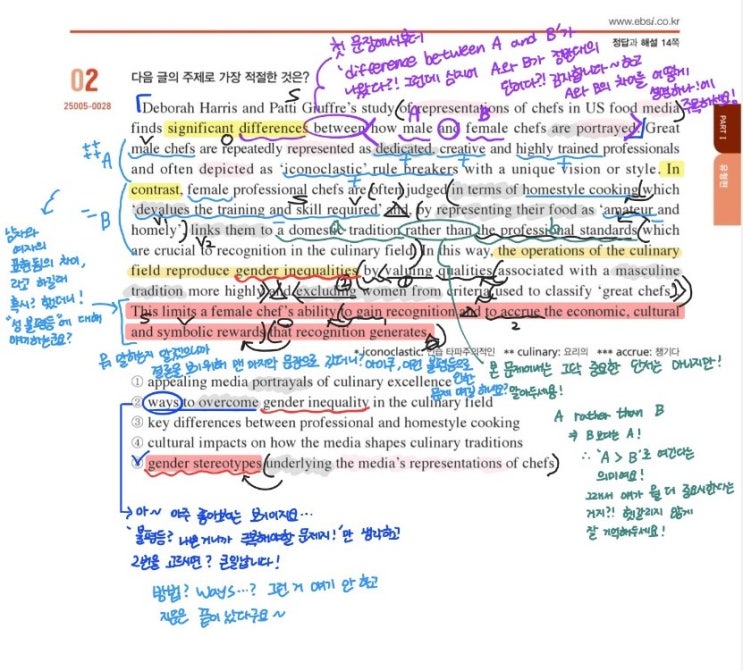 www.ebsi.co.kr
정답과 해설 14쪽
첫 문장에서부터
'difference between A and B'가
나왔다?! 그런데 심지어 A와 B가 정반대의
단어다?! 감사합니다~하고
A와 B의 차이를 어떻게
설명하나!에
집중하세요!
02
25005-0028
다음 글의 주제로 가장 적절한 것은?
PART I
유형편
Deborah Harris and Patti Giuffre's study of representations of chefs in US food media
finds significant differences between how male and female chefs are portrayed. Great
male chefs are repeatedly represented as dedicated, creative and highly trained professionals
and often depicted as 'iconoclastic' rule breakers with a unique vision or style. In
contrast, female professional chefs are often judged in terms of homestyle cooking which
'devalues the training and skill required' and, by representing their food as 'amateur and
homely', links them to a domestic tradition rather than the professional standards which
are crucial to recognition in the culinary field. In this way, the operations of the culinary
field reproduce gender inequalities by valuing qualities associated with a masculine
tradition more highly and excluding women from criteria used to classify 'great chefs.'
This limits a female chef's ability to gain recognition and to accrue the economic, cultural
and symbolic rewards that recognition generates.
*iconoclastic: 인습 타파주의적인 ** culinary: 요리의 *** accrue: 챙기다
++ A
- B
남자와
여자의
표현됨의 차이,
라고 하길래
혹시? 했더니!
"성 불평등"에 대해
① appealing media portrayals of culinary excellence
② ways to overcome gender inequality in the culinary field
③ key differences between professional and homestyle cooking
④ cultural impacts on how the media shapes culinary traditions
⑤ gender stereotypes underlying the media's representations of chefs
본 문제에서는 그닥 중요한 단서는 아니지만!
알아두세용!
A rather than B
⇒ B보다는 A!
∴ 'A > B'로 여긴다는
의미예요!
그래서 얘가 뭘 더 중요시한다는
거지?! 헷갈리지 않게
잘 기억해두세요!
→ 아~ 아주 좋아보이는 보기이지요...
'불평등? 나쁜거니까 극복해야할 문제지!'만 생각하고
2번을 고르시면? 큰일납니다!
방법? ways...? 그런 거 얘기 안 하고
지문은 끝이 났다구요~